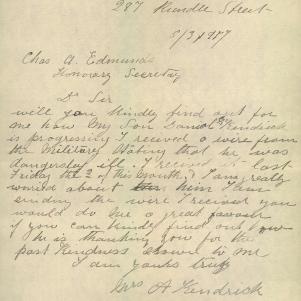 287 Rundle Street
5/3/1917
Chas A. Edmunds
Honorary Secretary
Dr Sir
will you kindly find out for
me how my Son Daniel Kendrick
is progressing I received a wire from
the Military stating that he was
dangersly ill. I received it last
Friday the 2 of this month. I am greatly
worried about him I am
sending the wire I received you
would do me a great favour
if you can kindly find out how
he is thanking you for the
past kindness shown to me
I am yours truly
Mrs A Kendrick